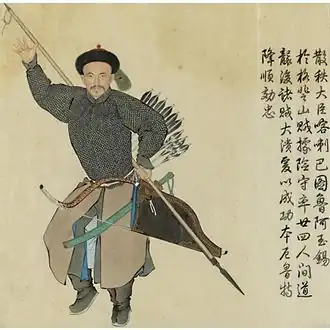 散秩大臣喀喇巴圖魯阿玉錫
於格登山賊據險守率廿四人間道
襲後諸賊大潰爰以成功本厄魯特
降順効忠